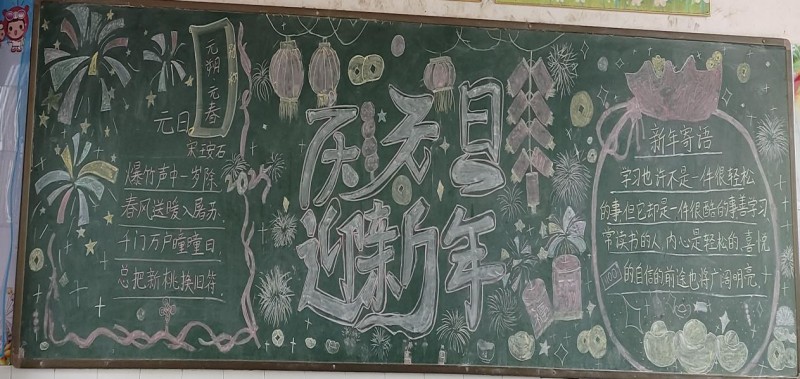 元朔元春
元日
宋王安石
爆竹声中一岁除
春风送暖入屠苏.
千门万户曈曈日
总把新桃换旧符.
庆元旦
迎新年
新年寄语
学习也许不是一件很轻松
的事但它却是一件很酷的事善学习
常读书的人,内心是轻松的,喜悦
的自信的前途也将广阔明亮.